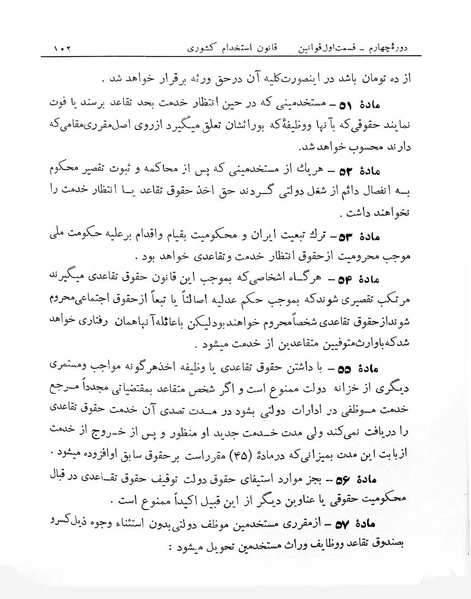 دورهٔ چهارم ـ قسمت اول قوانین قانون استخدام کشوری ۱۰۲
از ده تومان باشد در اینصورت کلیه آن درحق ورثه برقرار خواهد شد.
مادهٔ ۵۱ ـ مستخدمینی که در حین انتظار خدمت بحد تقاعد برسند یا فوت
نمایند حقوقی که بآنها ووظیفه‌که بوراثشان تعلق میگیرد ازروی اصل مقرری مقامی که
دارند محسوب خواهد شد.
مادهٔ ۵۲ ـ هریك از مستخدمینی که پس از محاکمه و ثبوت تقصیر محکوم
بـه انفصال دائم از شغل دولتی گـردند حق اخذ حقوق تقاعد یـا انتظار خدمت را
نخواهند داشت .
مادهٔ ۵۳ ـ ترك تبعیت ایران و محکومیت بقیام واقدام برعلیه حکومت ملی
موجب محرومیت ازحقوق انتظار خدمت وتقاعدی خواهد بود .
مادهٔ ۵۴ ـ هرگـاه اشخاصی‌که بموجب این قانون حقوق تقاعدی میگیرند
مرتکب تقصیری شوندکه بموجب حکم عدلیه اصالتاً یا تبعاً ازحقوق اجتماعی محروم
شوند ازحقوق تقاعدی شخصاً محروم خواهند بود لیکن با عائله آنها همان رفتاری خواهد
شدکه باوارث متوفیین متقاعدین از خدمت میشود .
مادهٔ ۵۵ ـ با داشتن حقوق تقاعدی یا وظیفه اخذ هرگونه مواجب ومستمری
دیگری از خزانه دولت ممنوع است و اگر شخص متقاعد بمقتضیاتی مجدداً مـرجع
خدمت مـوظفی در ادارات دولتی بشود در مـدت تصدی آن خدمت حقوق تقاعدی
را دریافت نمی‌کند ولی مدت خـدمت جدید او منظور و پس از خروج از خدمت
ازبابت این مدت بمیزانی‌که درمادهٔ (۴۵) مقرراست برحقوق سابق اوافزوده میشود .
مادهٔ ۵۶ ـ بجز موارد استیفای حقوق دولت توقیف حقوق تقـاعدی در قبال
محکومیت حقوقی یا عناوین دیگر از این قبیل اکیداً ممنوع است .
مادهٔ ۵۷ ـ ازمقرری مستخدمین موظف دولتی بدون استثناء وجوه ذیل کسرو
بصندوق تقاعد ووظایف وراث مستخدمین تحویل میشود :